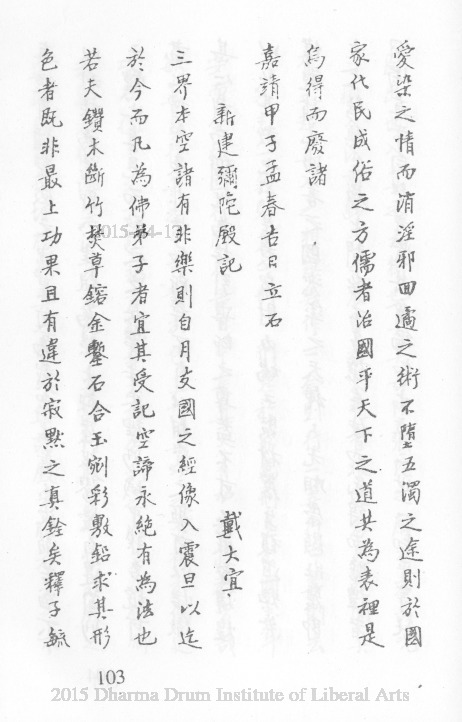 愛染之情而消淫邪回遹之術不墮五濁之途則於國
家代民成俗之方儒者治國平天下之道共為表裡是
烏得而廢諸
嘉靖甲子孟春吉日立石
新建彌陀殿記
戴大宜
三界本空諸有非樂則白月支國之經像入震旦以迄
於今而凡為佛弟子者宜其受記空諦永絕有為法也
若夫鑽木斷竹焚草鎔金鑿石合玉剜彩敷鉛求其形
色者既非最上功果且有違於寂默之真銓矣釋子毓
103
2015 Dharma Drum Institute of Liberal Arts